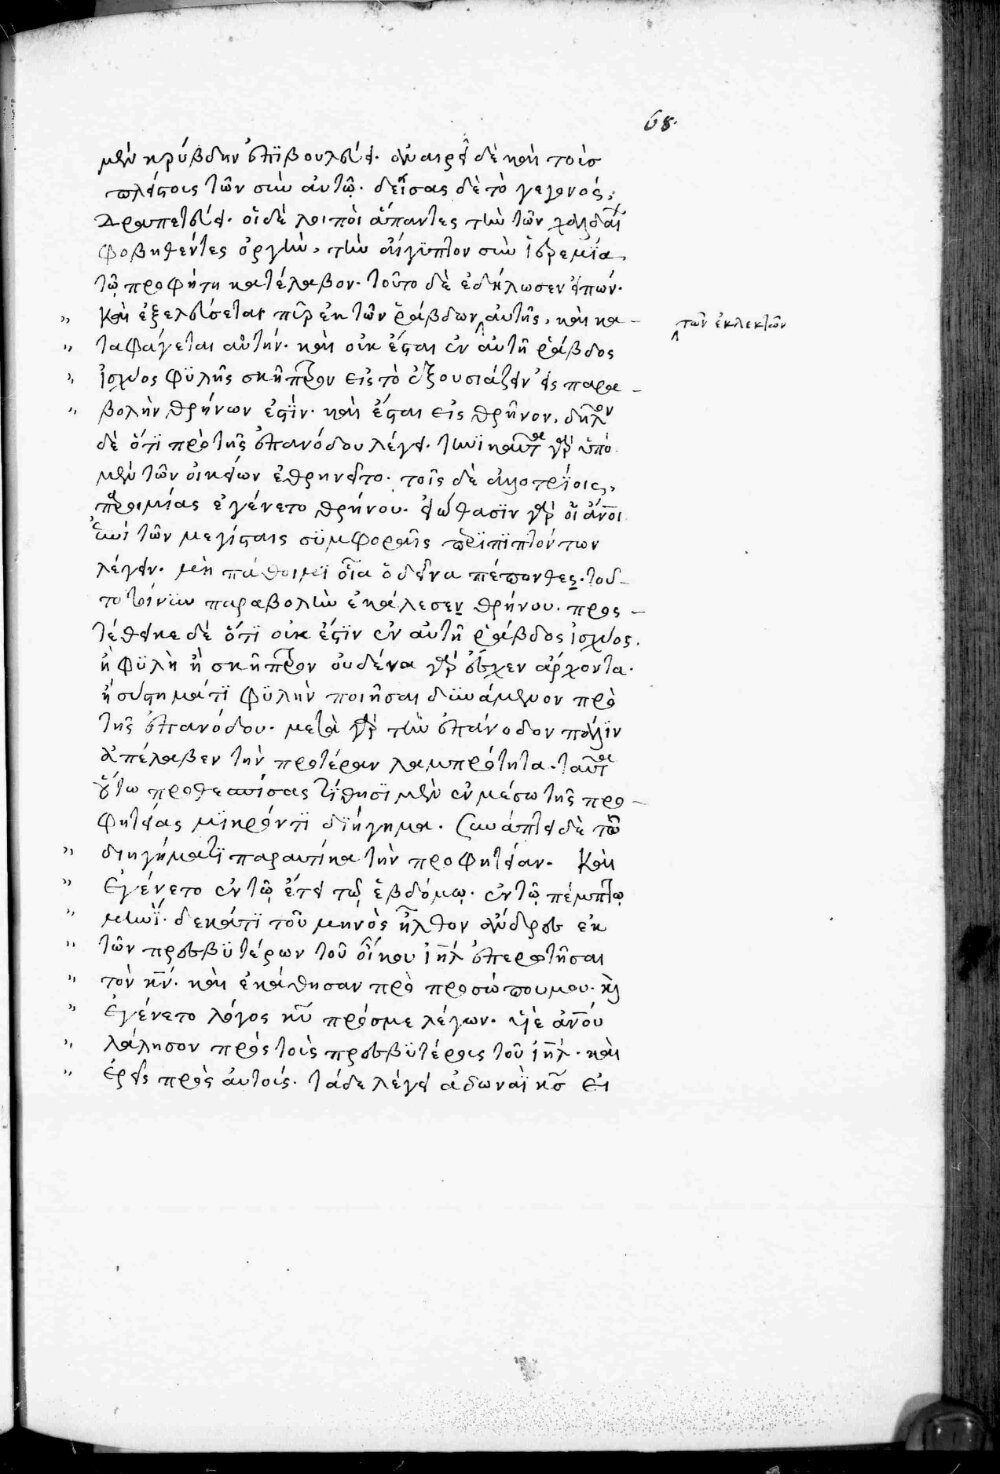 68.
μὲν κρύβδην ἐπϊβουλεύει. ἀναιρεῖ δὲ καὶ τοὺσ
πλείστους τῶν σὺν αὐτῷ. δείσας δὲ τὸ γεγονός,
δραπετεύει. οἱ δὲ λοιποὶ ἅπαντες τὴν τῶν χαλδαί
φοβηθέντες ὀργὴν, τὴν αἴγϋπτον σὺν ἱερεμίᾳ
τῷ προφήτῃ κατέλαβον. τοῦτο δὲ ἐδήλωσεν εἰπών.
" Καὶ ἐξελεύσεται πῦρ ἐκ τῶν ῥάβδων αὐτῆς, καὶ κα –
^ τῶν ἐκλεκτῶν
" ταφάγεται αὐτήν. καὶ οὐκ ἔσται ἐν αὐτῇ ῥάβδος
" ἰσχύος φϋλῆς σκῆπτρον εἰς τὸ ἐξουσιάζειν εἰς παρα –
" βολὴν θρήνων ἐστίν. καὶ ἔσται εἰς θρῆνον. δῆλον
δὲ ὅτι πρὸ τῆς ἐπανόδου λέγει. τηνϊκαῦτα γὰρ ὑπὸ
μὲν τῶν οἰκείων ἐθρηνεῖτο. τοῖς δὲ ἀλλοτρίοις,
παροιμίας ἐγένετο θρήνου. εἰώθασϊν γὰρ οἱ ἄνοι
ἐπὶ τῶν μεγίσταις σϋμφοραῖς περϊπϊπτόντων
λέγειν. μὴ πάθοιμϊ οἷα ὁ δεῖνα πέπονθες. τοῦ –
το τοίνυν παραβολὴν ἐκάλεσεν θρήνου. προσ –
τέθεικε δὲ ὅτϊ οὐκ ἔστϊν ἐν αὐτῇ ῥάβδος ἰσχύος.
ἢ φϋλὴ ἢ σκῆπτρον οὐδένα γὰρ ἔσχεν ἄρχοντα.
ἢ συστήματϊ φϋλὴν ποιῆσαι δϋνάμενον πρὸ
τῆς ἐπανόδου. μετὰ γὰρ τὴν ἐπάνοδον πάλϊν
ἀπέλαβεν τὴν προτέραν λαμπρότητα. ταῦτα
οὕτω προθεσπίσας τίθησϊ μὲν ἐν μέσω τῆς προ –
φητείας μϊκρόν τϊ δϊήγημα. συνάπτει δὲ τῷ
" διηγήματϊ παραυτίκα τὴν προφητείαν. Καὶ
" ἐγένετο ἐν τῷ ἔτει τῷ ἑβδόμῳ. ἐν τῷ πέμπτῳ
" μηνϊ. δεκάτϊ τοῦ μηνὸς ἦλθον ἄνδρες ἐκ
" τῶν πρεσβϋτέρων τοῦ οἴκου ἰηλ ἐπερωτῆσαι
" τὸν κν. καὶ ἐκάθησαν πρὸ προσώπου μου. κὶ
" ἐγένετο λόγος κυ πρός με λέγων. υἱὲ ἀνου
" λάλησον πρὸς τοὺς πρεσβϋτέρους τοῦ ἰηλ. καὶ
" ἐρεῖς πρὸς αὐτούς. τάδε λέγει ἀδωναῒ κσ εἰ